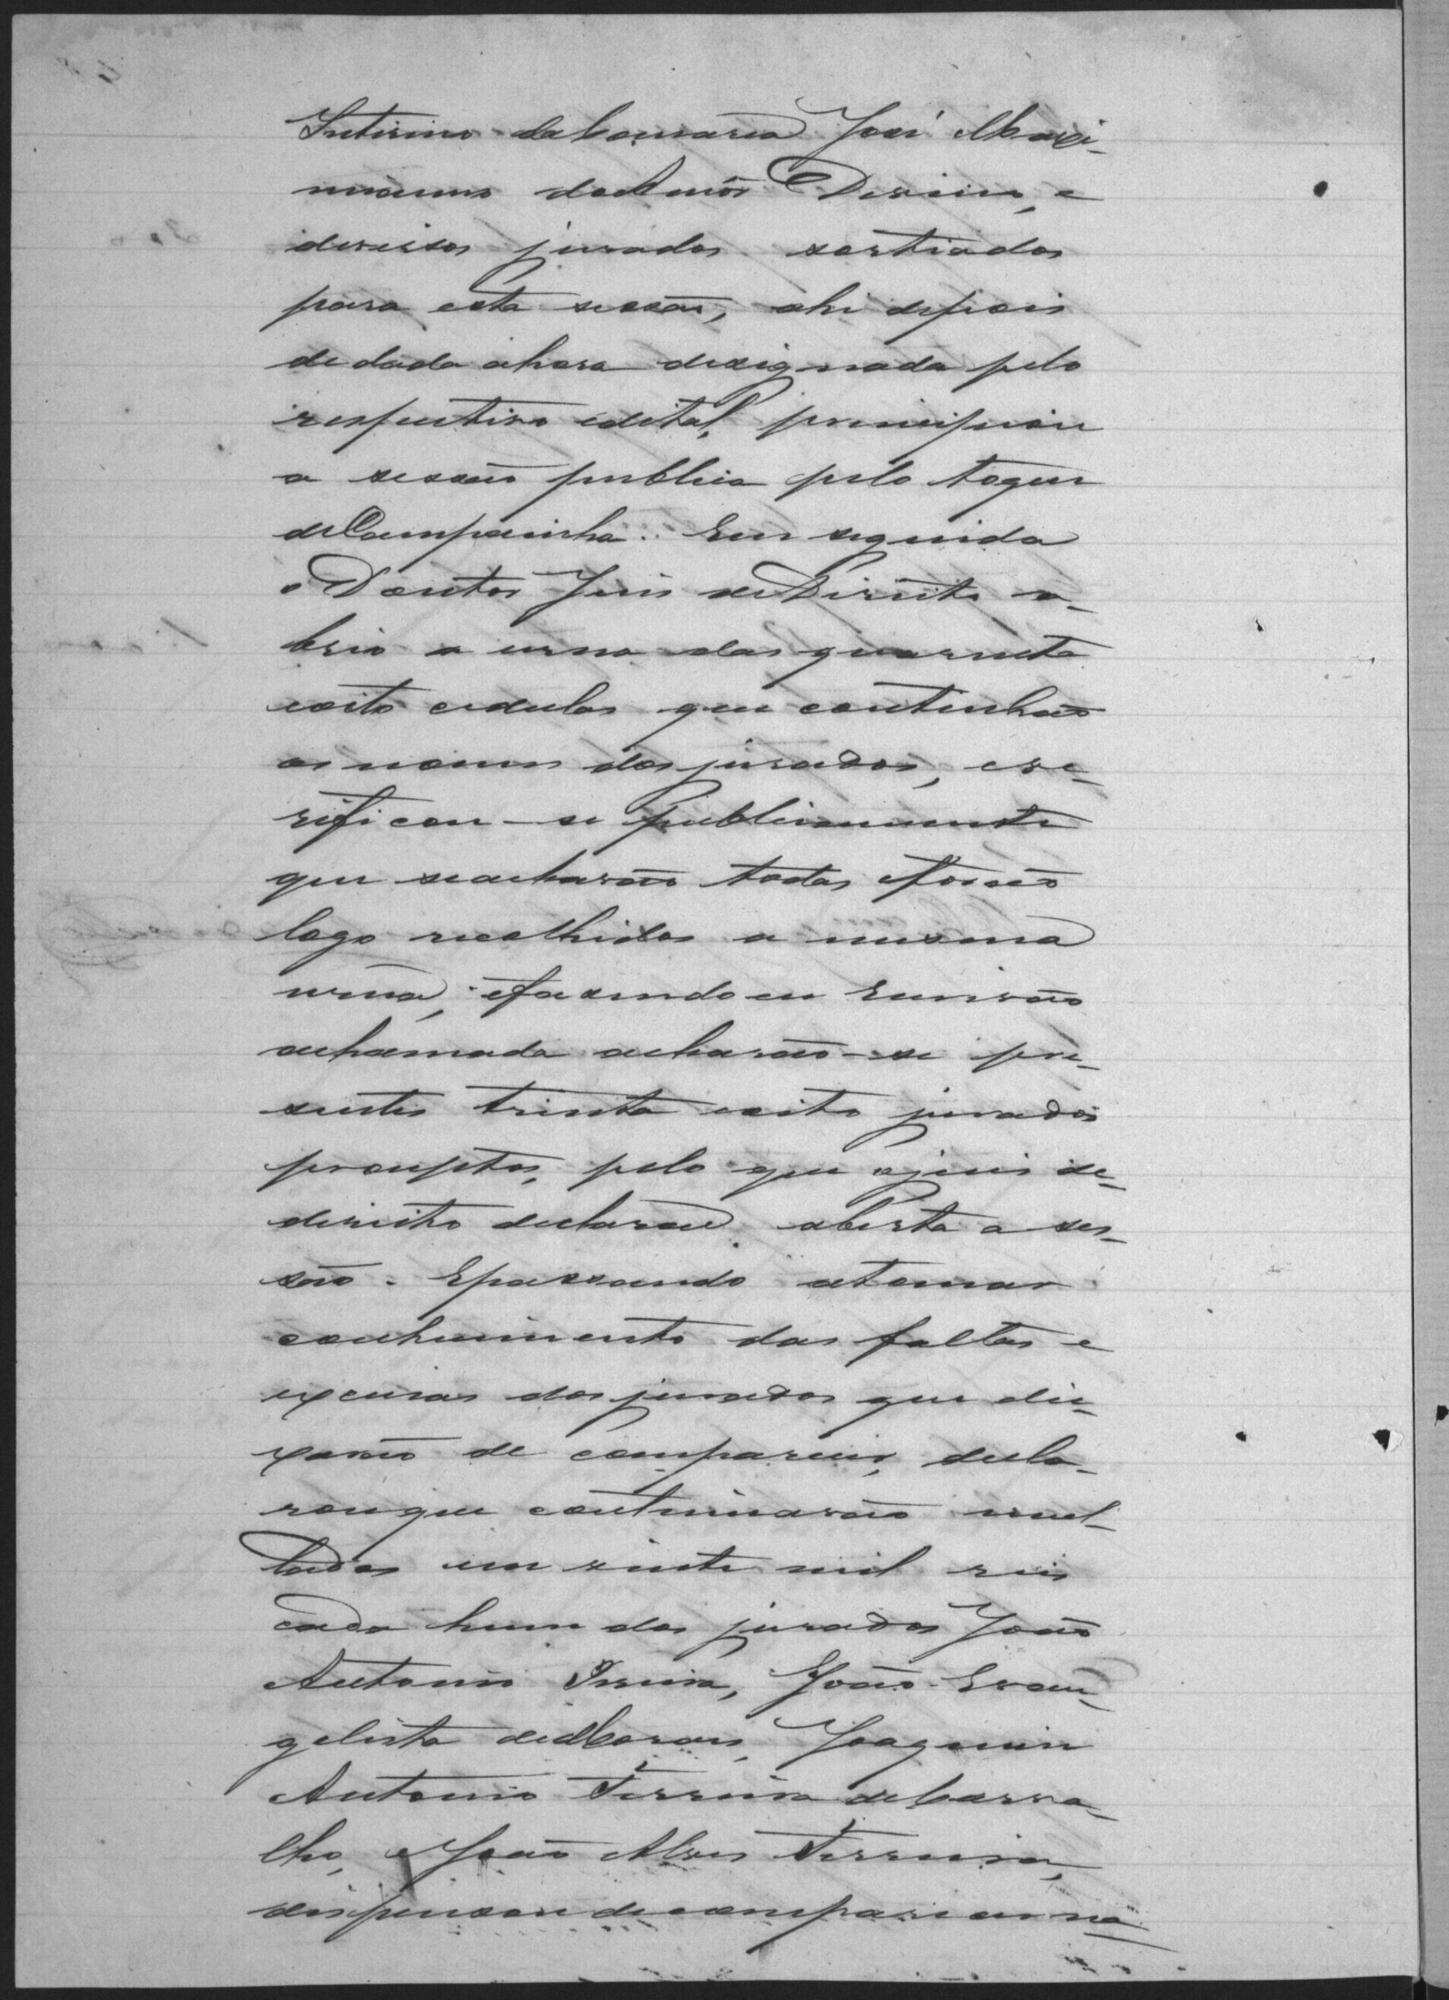 Interino da Comarca José Maxi-
miano de Amor Divino, e
diversos jurados sortiados
para esta sessão, ahi depois
de dada ahora designada pelo
respectivo edital, principiou
a sessão publica pelo toque
de Campainha. Em seguida
o Doutor Juis de Direito a-
brio a urna das quarenta
eoito cedulas que continhão
os nomes dos jurados, eve-
rificou-se publicamente
que seacharão todas eforão
logo recolhidas a mesma
urna, efasendo eu Escrivão
achamada acharão-se pre-
sentes trinta eoito jurados
promptos, pelo que ojuis de
direito declarou aberta a ses-
são. Epassando atomar
conhecimento das faltas e
excusas dos jurados que dei-
xarão de comparecer, decla-
rou que continuarão mul-
tados em vinte mil reis
cada hum dos jurados João
Antonio, João Evan-
gelista de Moraes, Joaquim
Antonio Ferreira de Carva-
lho, e João Alves Ferreira,
dispensou de comparecer na